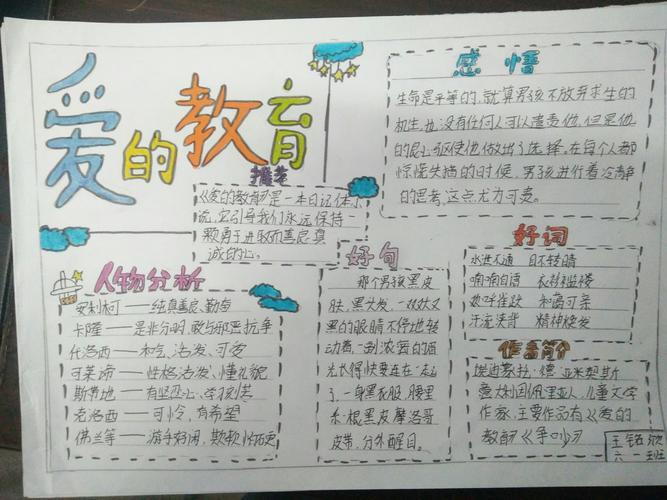 爱的教育
推荐
《爱的教育》是一本日记体小
说,它引导我们永远保持一
颗勇于进取而善良真
诚的心。
感悟
生命是平等的,就算男孩不放弃求生的
机生,也没有任何人可以谴责他,但是他
的良心驱使他做出了选择,在每个人都
惊慌失措的时候,男孩进行着冷静
的思考,这点尤为可贵。
人物分析
安利柯——纯真善良,勤奋
卡隆——是非分明,敢与邪恶抗争
代洛西——和气、活发、可爱
可莱谛——性格活发、懂礼貌
斯带地——有坚定心、学习供
老洛西——可怜,有希望
佛兰等——游手好闲,欺软怕硬
好句
那个男孩黑皮
肤,黑头发,一双大又
黑的眼睛不停地转
动着,一副浓密的面
毛长得快要连在一起
了,一身黑衣服,腰里
系一根黑皮摩洛哥
皮带,分外醒目。
好词
水泄不通 目不转睛
喃喃自语 衣衫褴褛
欢呼雀跃 和蔼可亲
汗流浃背 精神焕发
作者简介
埃迪蒙托·德·亚米契斯
意大利国佩里亚人,儿童文学
作家,主要作品有《爱的
教育》《争吵》
六一班